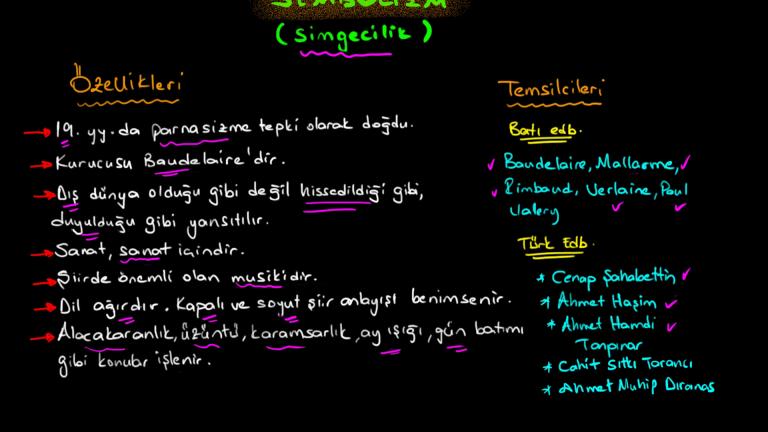 SEMBOLİZM
(simgecilik)
Özellikleri
19. yy. da parnasizme tepki olarak doğdu.
Kurucusu Baudelaire'dir.
Dış dünya olduğu gibi değil hissedildiği gibi,
duyulduğu gibi yansıtılır.
Sanat, sanat içindir.
Şiirde önemli olan musikidir.
Dil ağırdır. Kapalı ve soyut şiir anlayışı benimsenir.
Alacakaranlık, üzüntü, karamsarlık, ay ışığı, gün batımı
gibi konular işlenir.
Temsilcileri
Batı edb.
Baudelaire, Mallarme,
Rimbaud, Verlaine, Paul
Valery
Türk Edb.
* Cenap Şahabettin
* Ahmet Haşim
* Ahmet Hamdi
Tanpınar
* Cahit Sıtkı Tarancı
* Ahmet Muhip Dıranas